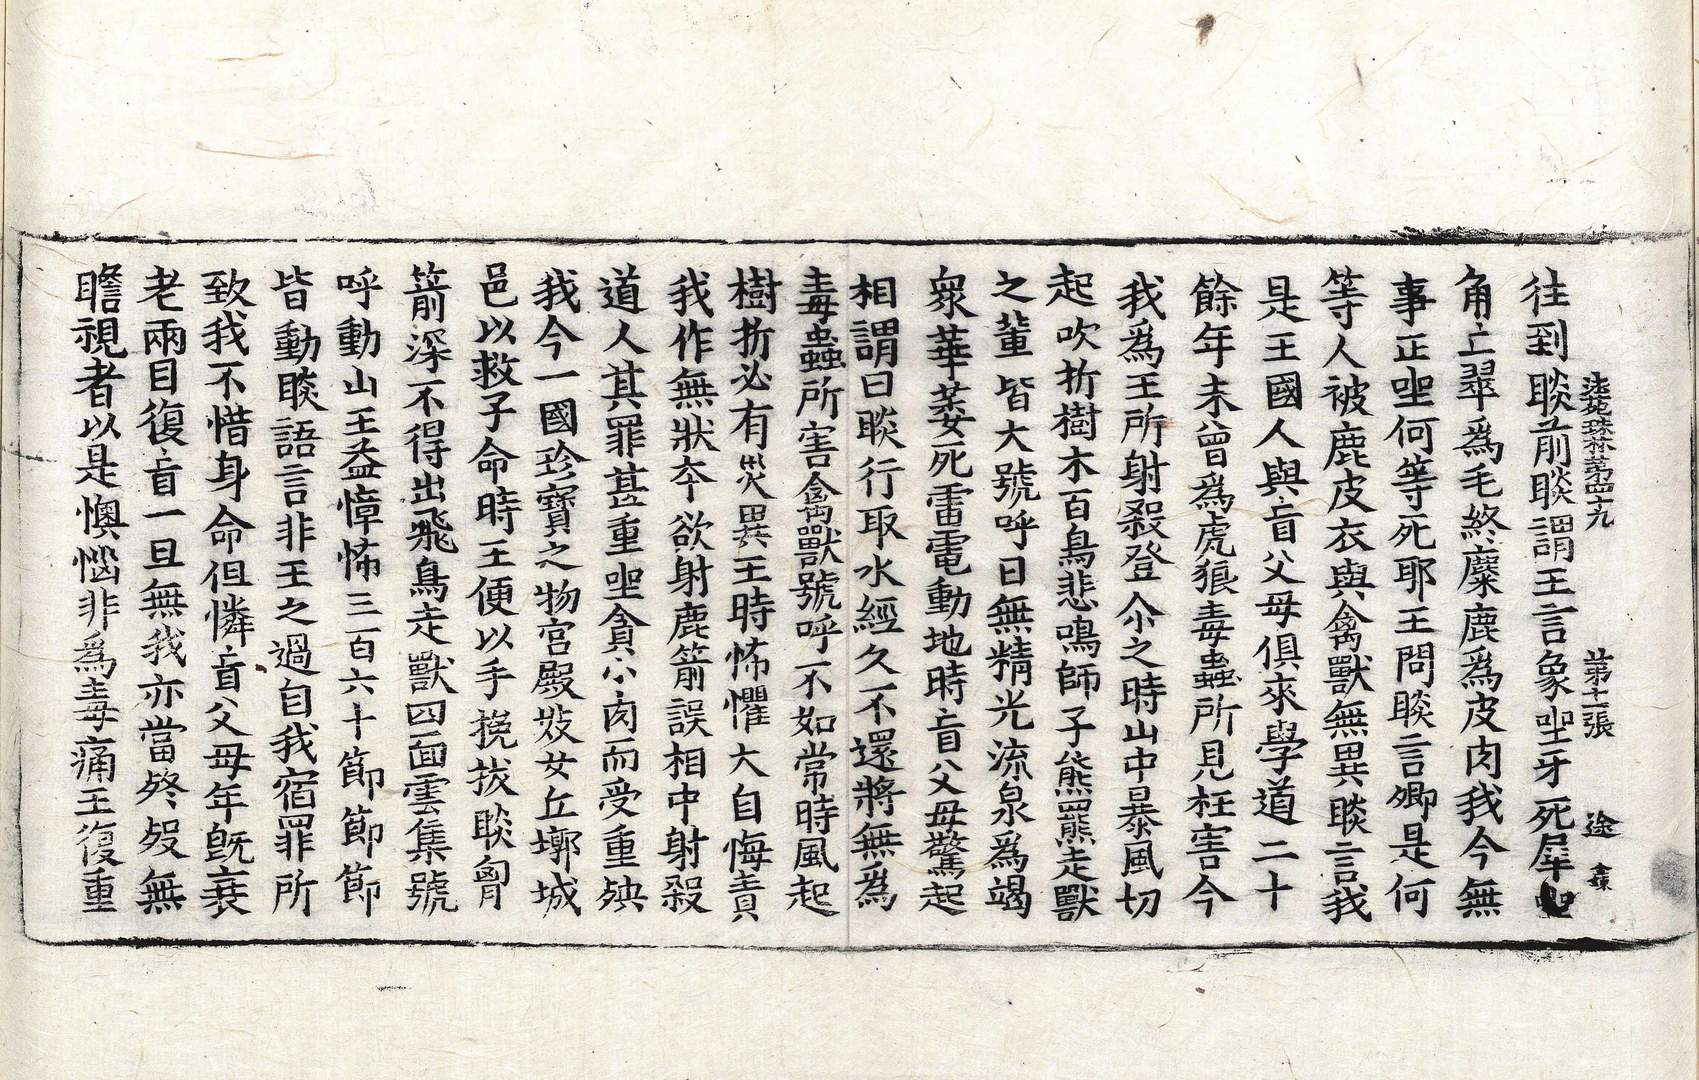 法苑珠林第四十九　第十一張　途
往到睒前睒謂王言象坐牙死犀坐
角亡翠爲毛終麋鹿爲皮肉我今無
事正坐何等死耶王問睒言卿是何
等人被鹿皮衣與禽獸無異睒言我
是王國人與盲父母俱來學道二十
餘年未曾爲虎狼毒蟲所見枉害今
我爲王所射殺登尒之時山中暴風切
起吹折樹木百鳥悲鳴師子熊羆走獸
之輩皆大號呼日無精光流泉爲竭
衆華萎死雷電動地時盲父母驚起
相謂曰睒行取水經久不還將無爲
毒蟲所害禽獸號呼不如常時風起
樹折必有灾異王時怖懼大自悔責
我作無狀夲欲射鹿箭誤相中射殺
道人其罪甚重坐貪小肉而受重殃
我今一國珍寶之物宮殿妓女丘墎城
邑以救子命時王便以手挽拔睒胷
箭深不得出飛鳥走獸四面雲集號
呼動山王益慞怖三百六十節節節
皆動睒語言非王之過自我宿罪所
致我不惜身命但憐盲父母年旣衰
老兩目復盲一旦無我亦當終歿無
瞻視者以是懊惱非爲毒痛王復重